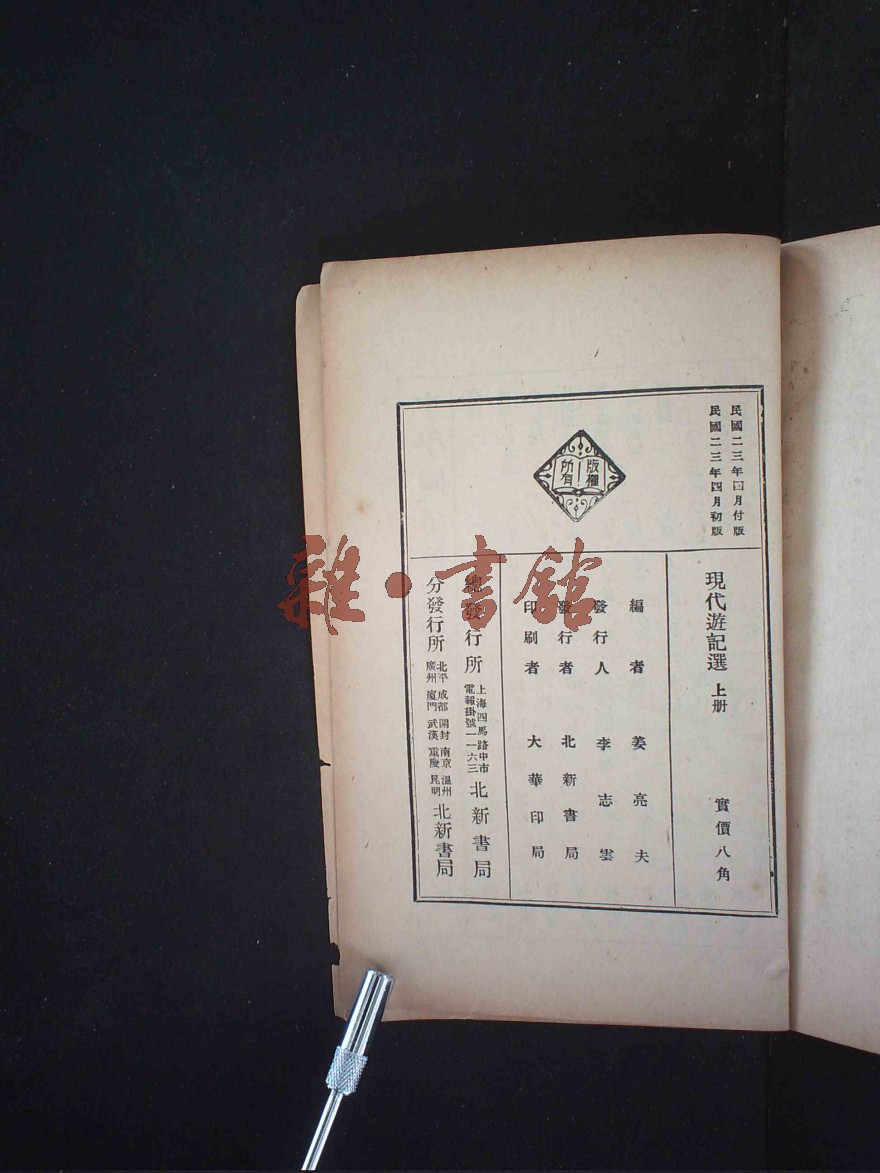 民國二三年四月付版
民國二三年四月初版
版權
所有
現代遊記選 上册
實價八角
編者 姜亮夫
發行人 李志雲
發行者 北新書局
印刷者 大華印局
總發行所 上海四馬路中市 電報掛號一一六三 北新書局
分發行所 北平 成都 開封 南京 溫州 廣州 廈門 武漢 重慶 昆明 北新書局
雜·書館